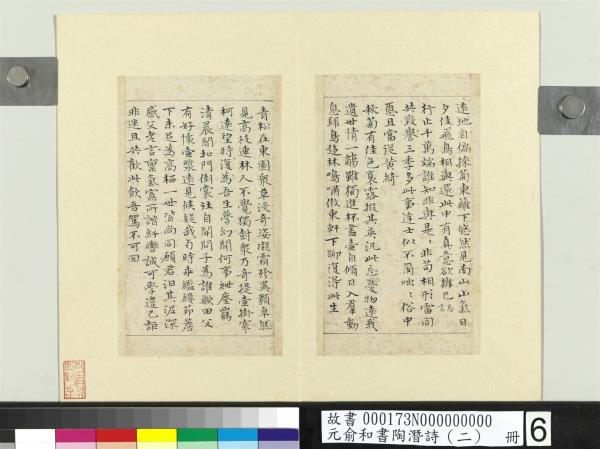 遠地自偏採菊東籬下悠然見南山山氣日
夕佳飛鳥相與還此中有真意欲辨已忘
行止千萬端誰知非與是是非苟相形雷同
共毀譽三季多此事達士似不爾咄咄俗中
惡且當從黃綺
秋菊有佳色裛露掇其英汎此忘憂物遠我
遺世情一觴雖獨進杯盡壺自傾日入群動
息歸鳥趨林鳴嘯傲東軒下聊復得此生
青松在東園衆草沒奇姿凝霜殄異類卓然
見高枝連林人不覺獨對衆乃奇提壺掛寒
柯遠望時復為吾生夢幻間何事紲塵羈
清晨聞扣門倒裳往自開問子為誰歟田父
有好懷壺漿遠見候疑我與時乖襤縷茆簷
下未足為高栖一世皆尚同願君汩其泥深
感父老言稟氣寡所諧紆轡誠可學違己詎
非迷且共歡此飲吾駕不可回
故書000173N000000000
元俞和書陶潛詩(二) 冊
6